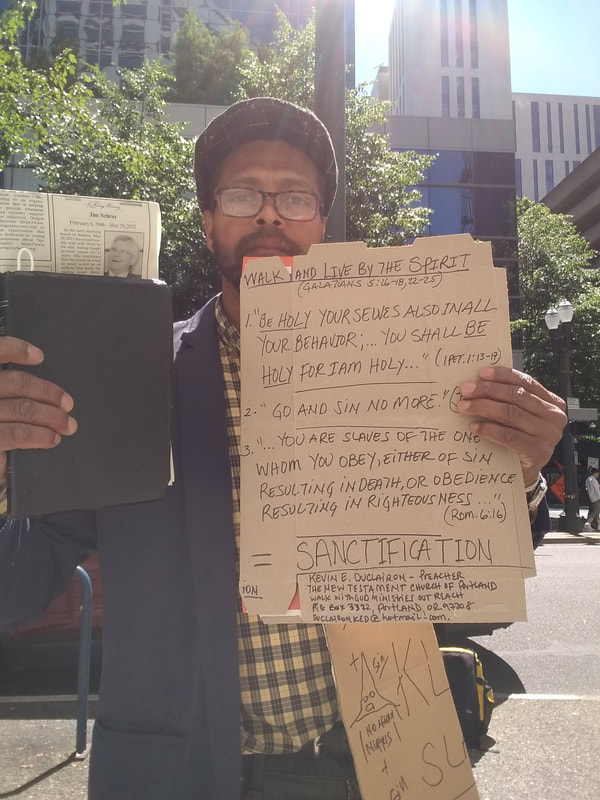 In Loving Memory
Jim Schray
February 6, 1946 - May 29, 2021
WALK AND LIVE BY THE SPIRIT
(GALATIANS 5:16-18, 22-25)
1. "BE HOLY YOURSELVES ALSO IN ALL
YOUR BEHAVIOR; ... YOU SHALL BE
HOLY FOR I AM HOLY..." (1 PET. 1:13-17)
2. "GO AND SIN NO MORE."
3. "... YOU ARE SLAVES OF THE ONE
WHOM YOU OBEY, EITHER OF SIN
RESULTING IN DEATH, OR OBEDIENCE
RESULTING IN RIGHTEOUSNESS ..."
(ROM. 6:16)
= SANCTIFICATION
ION
KEVIN E. DUCLAIRON - PREACHER
THE NEW TESTAMENT CHURCH OF PORTLAND
WALK WITH GOD MINISTRIES OUT REACH
P.O. BOX 3322, PORTLAND, OR 97208
DUCLAIRONKED@hotmail.com.
+ Sin
KL
+
Sin
SU